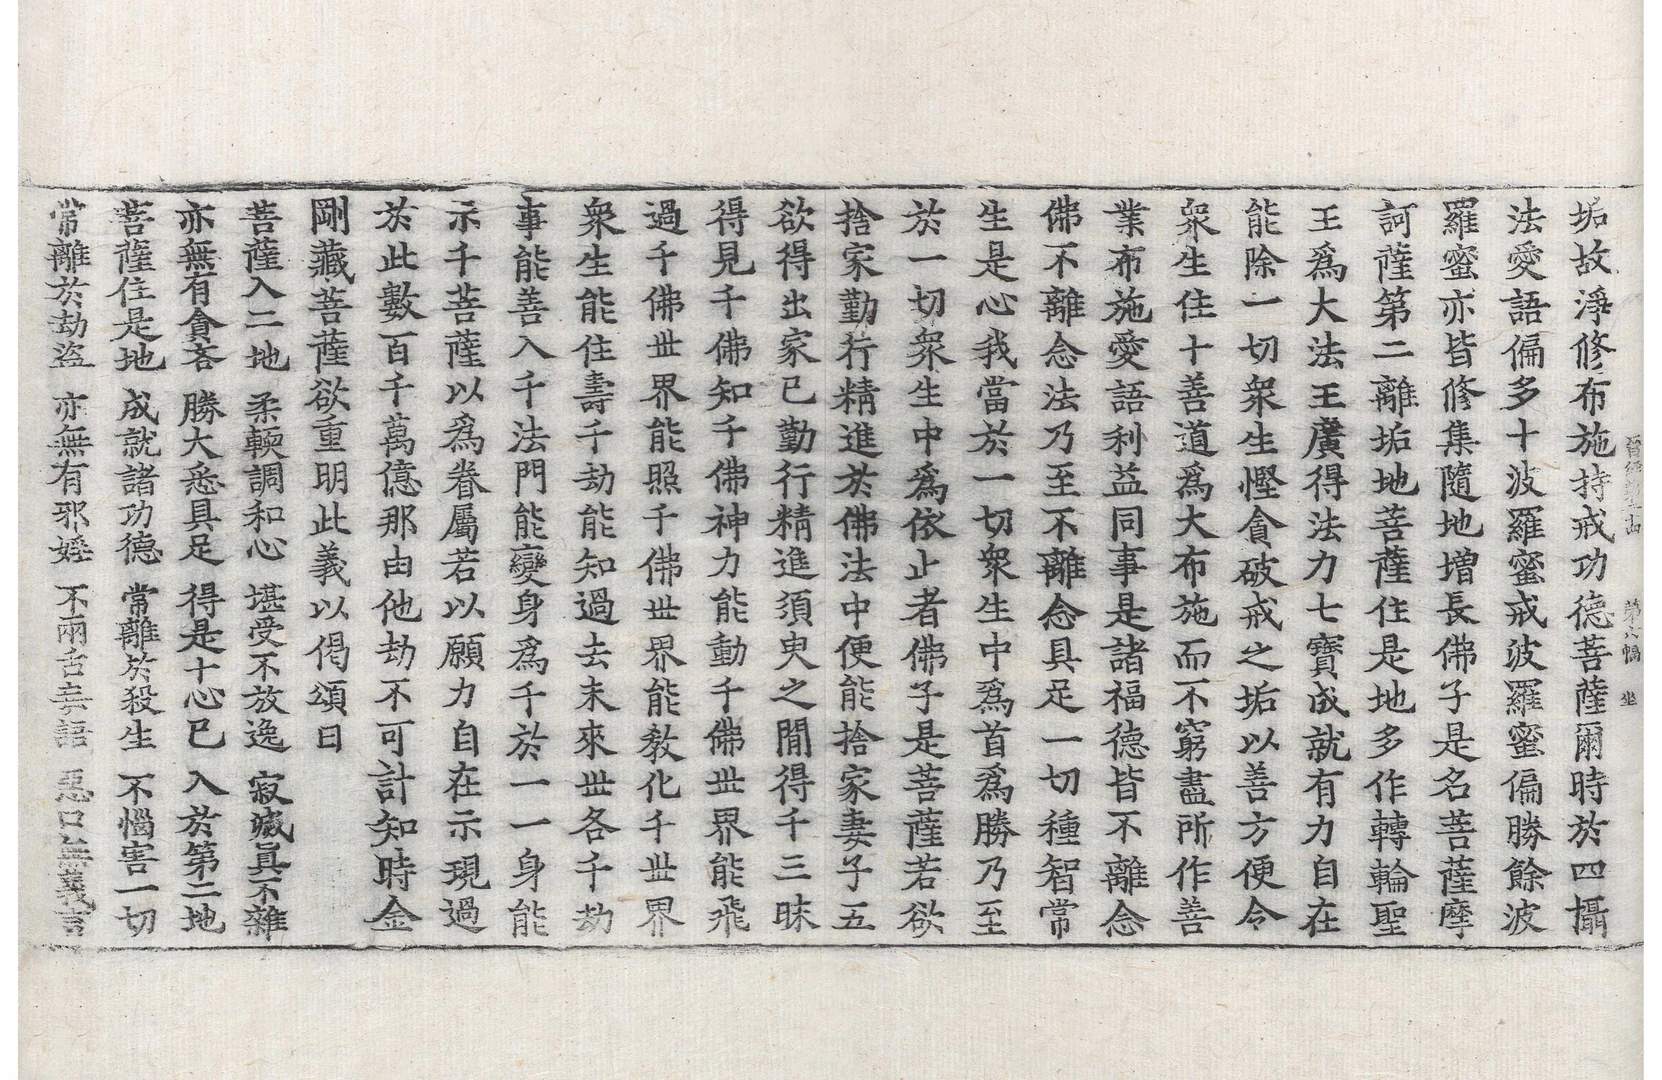 垢故淨修布施持戒功德菩薩爾時於四攝
法愛語偏多十波羅蜜戒波羅蜜偏勝餘波
羅蜜亦皆修集隨地增長佛子是名菩薩摩
訶薩第二離垢地菩薩住是地多作轉輪聖
王爲大法王廣得法力七寶成就有力自在
能除一切衆生慳貪破戒之垢以善方便令
衆生住十善道爲大布施而不窮盡所作善
業布施愛語利益同事是諸福德皆不離念
佛不離念法乃至不離念具足一切種智常
生是心我當於一切衆生中爲首爲勝乃至
於一切衆生中爲依止者佛子是菩薩若欲
捨家勤行精進於佛法中便能捨家妻子五
欲得出家已勤行精進須臾之閒得千三昧
得見千佛知千佛神力能動千佛世界能飛
過千佛世界能照千佛世界能教化千世界
衆生能住壽千劫能知過去未來世各千劫
事能善入千法門能變身爲千於一一身能
示千菩薩以爲眷屬若以願力自在示現過
於此數百千萬億那由他劫不可計知時金
剛藏菩薩欲重明此義以偈頌曰
菩薩入二地　柔輭調和心　堪受不放逸　寂滅眞不雜
亦無有貪吝　勝大悉具足　得是十心已　入於第二地
菩薩住是地　成就諸功德　常離於殺生　不惱害一切
常離於劫盜　亦無有邪婬　不兩舌妄語　惡口無義言